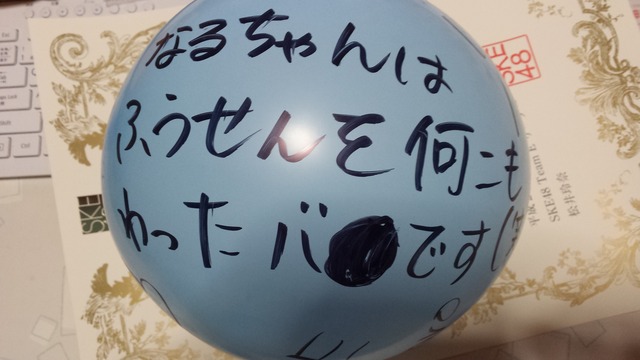 なるちゃんは
ふうせんを何こも
わったバ●です
SKE
48
SKE
SKE48 Team E
松井玲奈